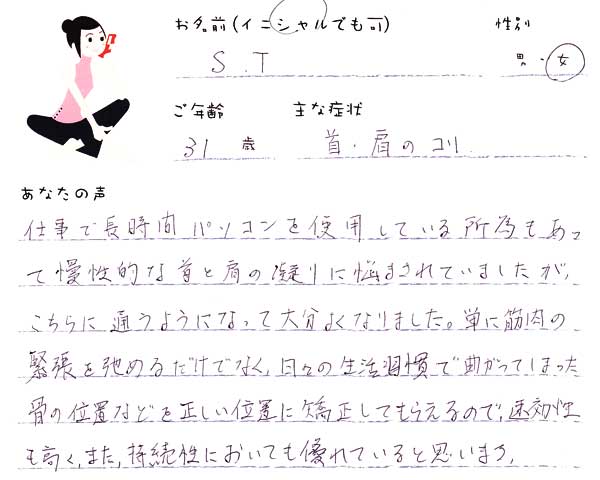 お名前(イニシャルでも可)
性別
S.T
男・女
ご年齢
主な症状
31歳
首・肩のコリ
あなたの声
仕事で長時間パソコンを使用している所為もあっ
て慢性的な首と肩の凝りに悩まされていましたが、
こちらに通うようになって大分よくなりました。単に筋肉の
緊張を弛めるだけでなく、日々の生活習慣で曲がってしまった
骨の位置などを正しい位置に矯正してもらえるので、速効性
も高く、また、持続性においても優れていると思います。